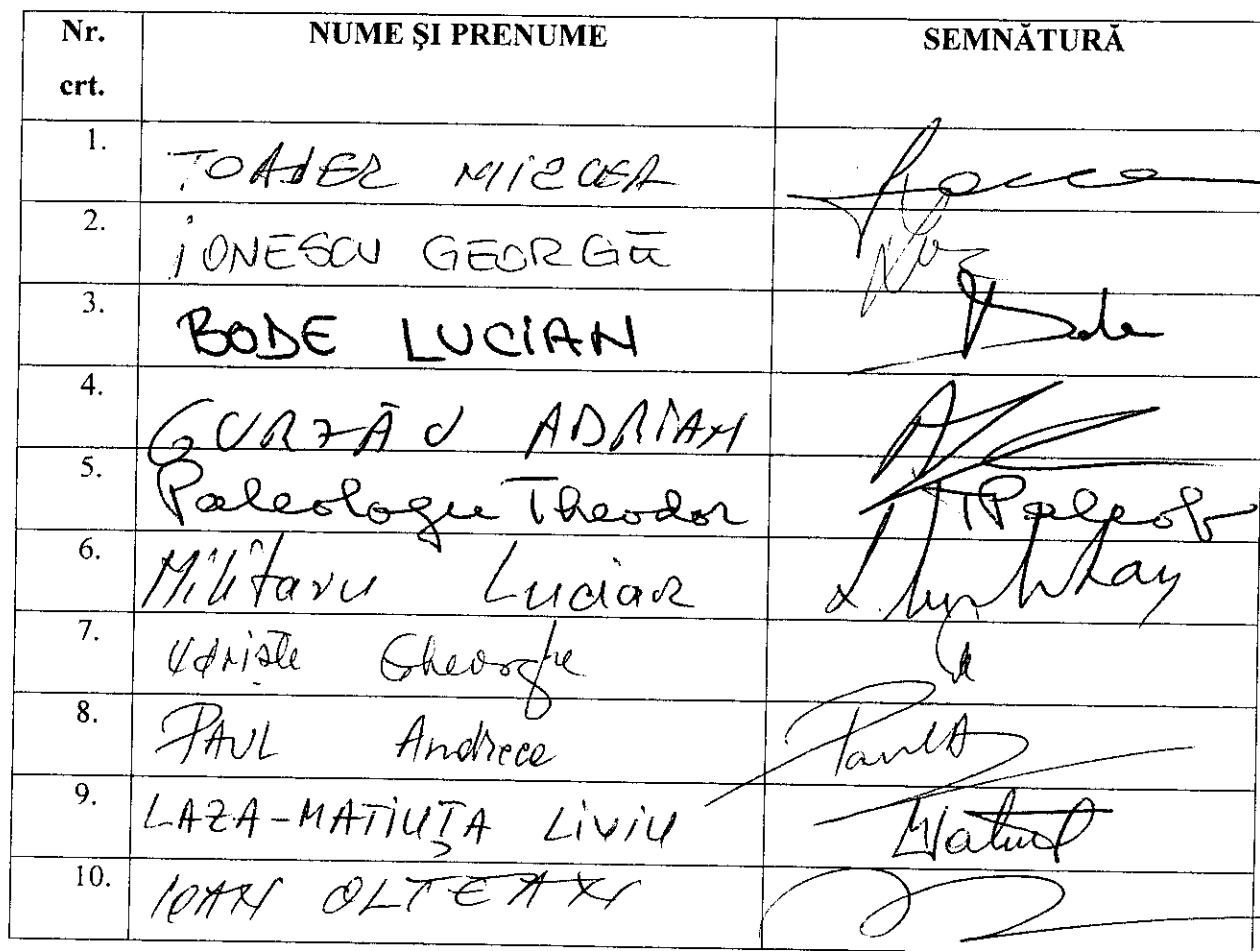 Nr. crt. NUME ŞI PRENUME SEMNĂTURĂ
1. TOADER MIRCEA
2. IONESCU GEORGE
3. BODE LUCIAN Bode
4. GURZĂU ADRIAN
5. Paleologu Theodor TPaleolo
6. Militaru Lucian
7. Udriște Gheorghe
8. PAUL Andreea PaulA
9. LAZA-MATIUȚA LIVIU
10. IOAN OLTEAN